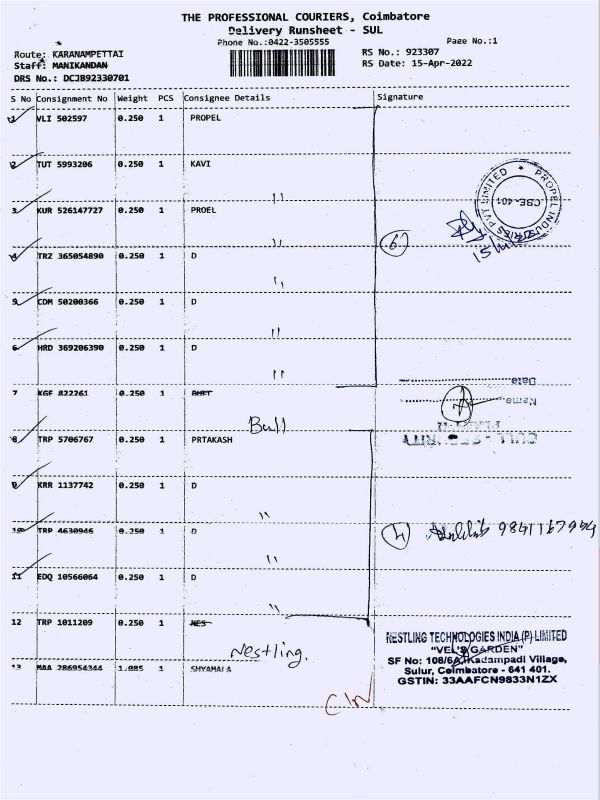 THE PROFESSIONAL COURIERS, Coimbatore
Delivery Runsheet - SUL
Phone No.:0422-3505555
Page No.:1
Route: KARANAMPETTAI
RS No.: 923307
Staff: MANIKANDAN
RS Date: 15-Apr-2022
DRS No.: DCJB92330701
S No Consignment No Weight PCS Consignee Details Signature
1 VLI 502597 0.250 1 PROPEL
2 TUT 5993206 0.250 1 KAVI
"
3 KUR 526147727 0.250 1 PROEL
"
4 TRZ 365054890 0.250 1 D
"
5 CDM 50200366 0.250 1 D
"
6 HRD 369206390 0.250 1 D
"
7 KGF 822261 0.250 1
Bull
8 TRP 5706767 0.250 1 PRTAKASH
9 KRR 1137742 0.250 1 D
"
10 TRP 4630946 0.250 1 D
"
11 EDQ 10566064 0.250 1 D
"
12 TRP 1011209 0.250 1 NES
Nestling.
13 MAA 286954344 1.085 1 SHYAMALA
PROPEL INDUSTRIES PVT LIMITED
CBE-401
6
Date
Name
4
NESTLING TECHNOLOGIES INDIA (P) LIMITED
"VEL'S GARDEN"
SF No: 108/6A, Kadampadi Village,
Sulur, Coimbatore - 641 401.
GSTIN: 33AAFCN9833N1ZX